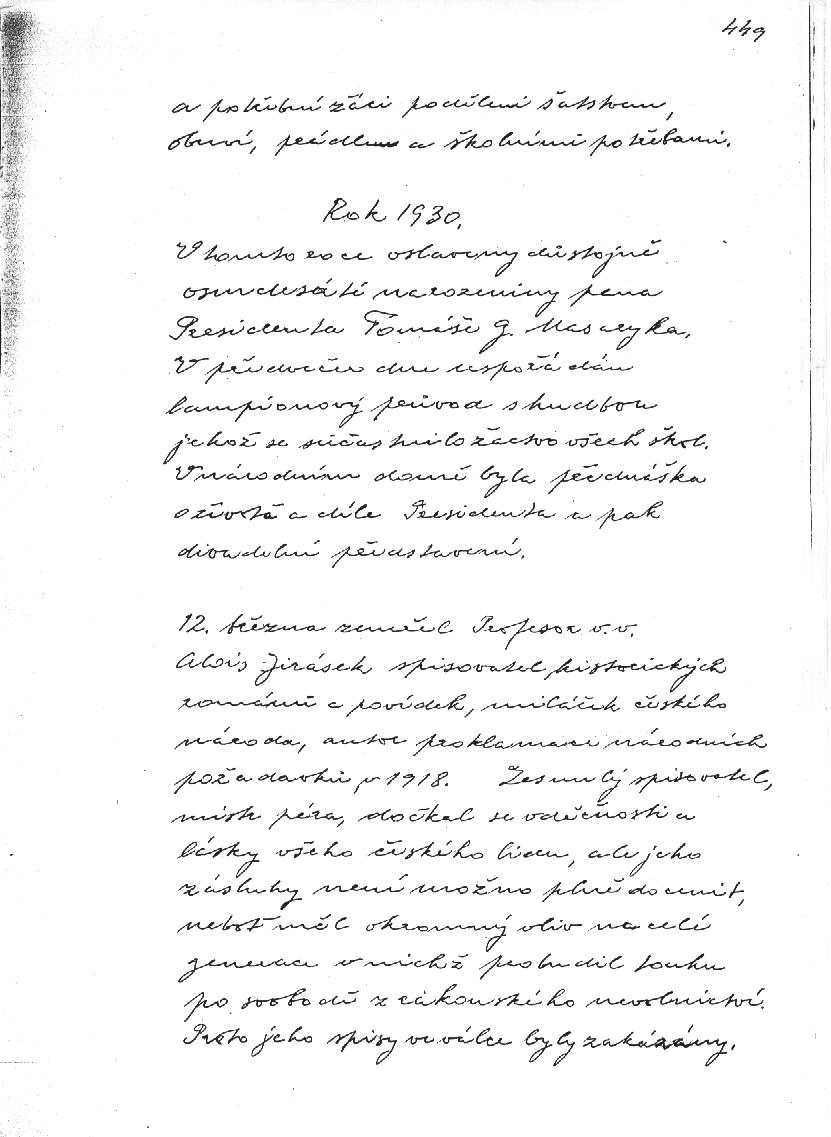 449
a potřební žáci poděleni šatstvem,
obuví, prádlem a školními potřebami.
Rok 1930.
V tomto roce oslaveny důstojně
osmdesáté narozeniny pana
Presidenta Tomáše G. Masaryka.
V předvečer dne uspořádán
lampionový průvod s hudbou
jehož se súčastnilo žactvo všech škol.
V národním domě byla přednáška
o životě a díle Presidenta a pak
divadelní představení.
12. března zemřel Profesor v.v.
Alois Jirásek spisovatel historických
románů a povídek, miláček českého
národa, autor proklamací národních
požadavků v 1918. Zesnulý spisovatel,
mistr péra, dočkal se vděčnosti a
lásky všeho českého lidu, ale jeho
zásluhy není možno plně docenit,
neboť měl ohromný vliv na celé
generace v nichž probudil touhu
po svobodě z rákouského nevolnictví.
Proto jeho spisy ve válce byly zakázány.